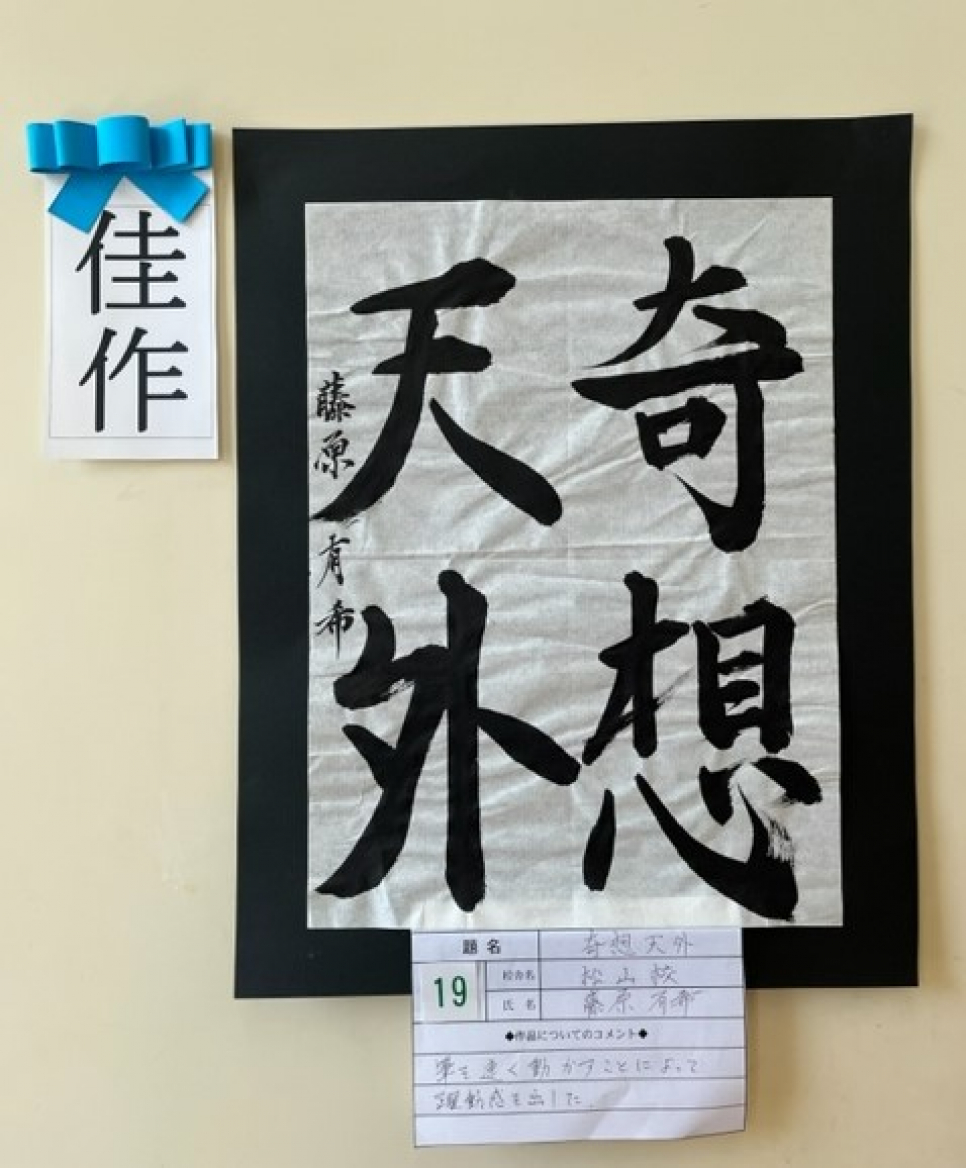 佳作
奇想
天外
藤原有希
題名 奇想天外
19
校舎名 松山校
氏名 藤原有希
◆作品についてのコメント◆
筆を速く動かすことによって
躍動感を出した。